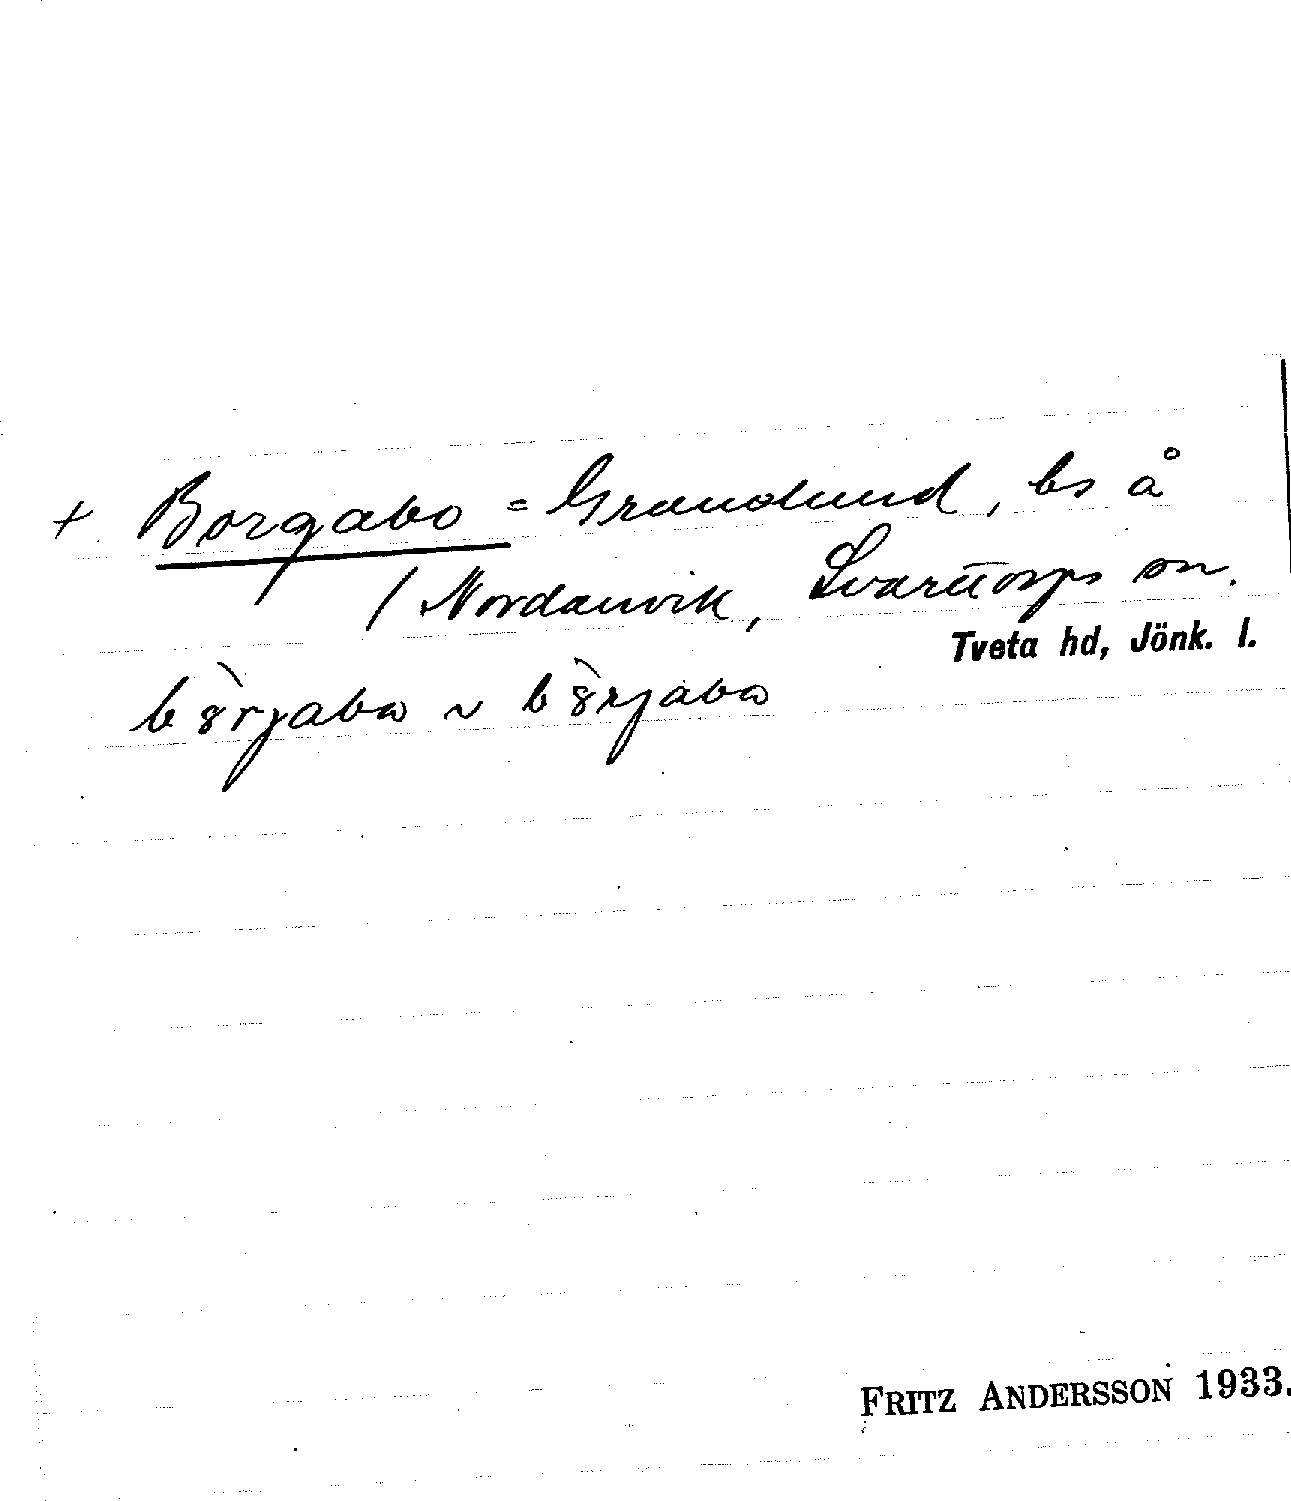 + Borgabo = Granslund, bs å
/ Nordanvik, Svarttorps sn.
Tveta hd, Jönk. l.
b8̀rjabω ~ b8̀rjabω
FRITZ ANDERSSON 1933.